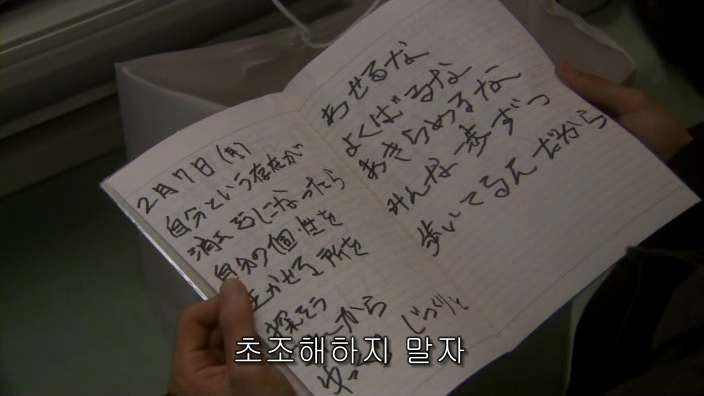 2月7日(月)
自分という存在が
消えそうになったら
自分の個性を
生かせる所を
探そう
から
ゆっ
じっくりと
あせるな
よくばるな
あきらめるな
みんな一歩ずつ
歩いてるんだから
초조해하지 말자